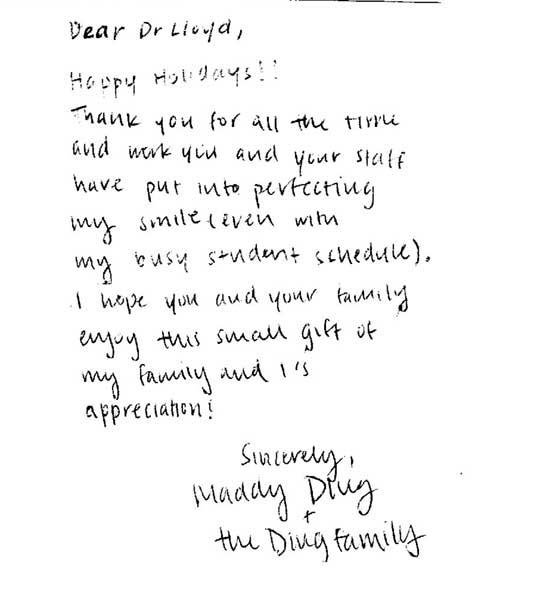 Dear Dr Lloyd,
Happy Holidays!!
Thank you for all the time
and work you and your staff
have put into perfecting
my smile (even with
my busy student schedule).
I hope you and your family
enjoy this small gift of
my family and I's
appreciation!
Sincerely,
Maddy Ding
+
the Ding family